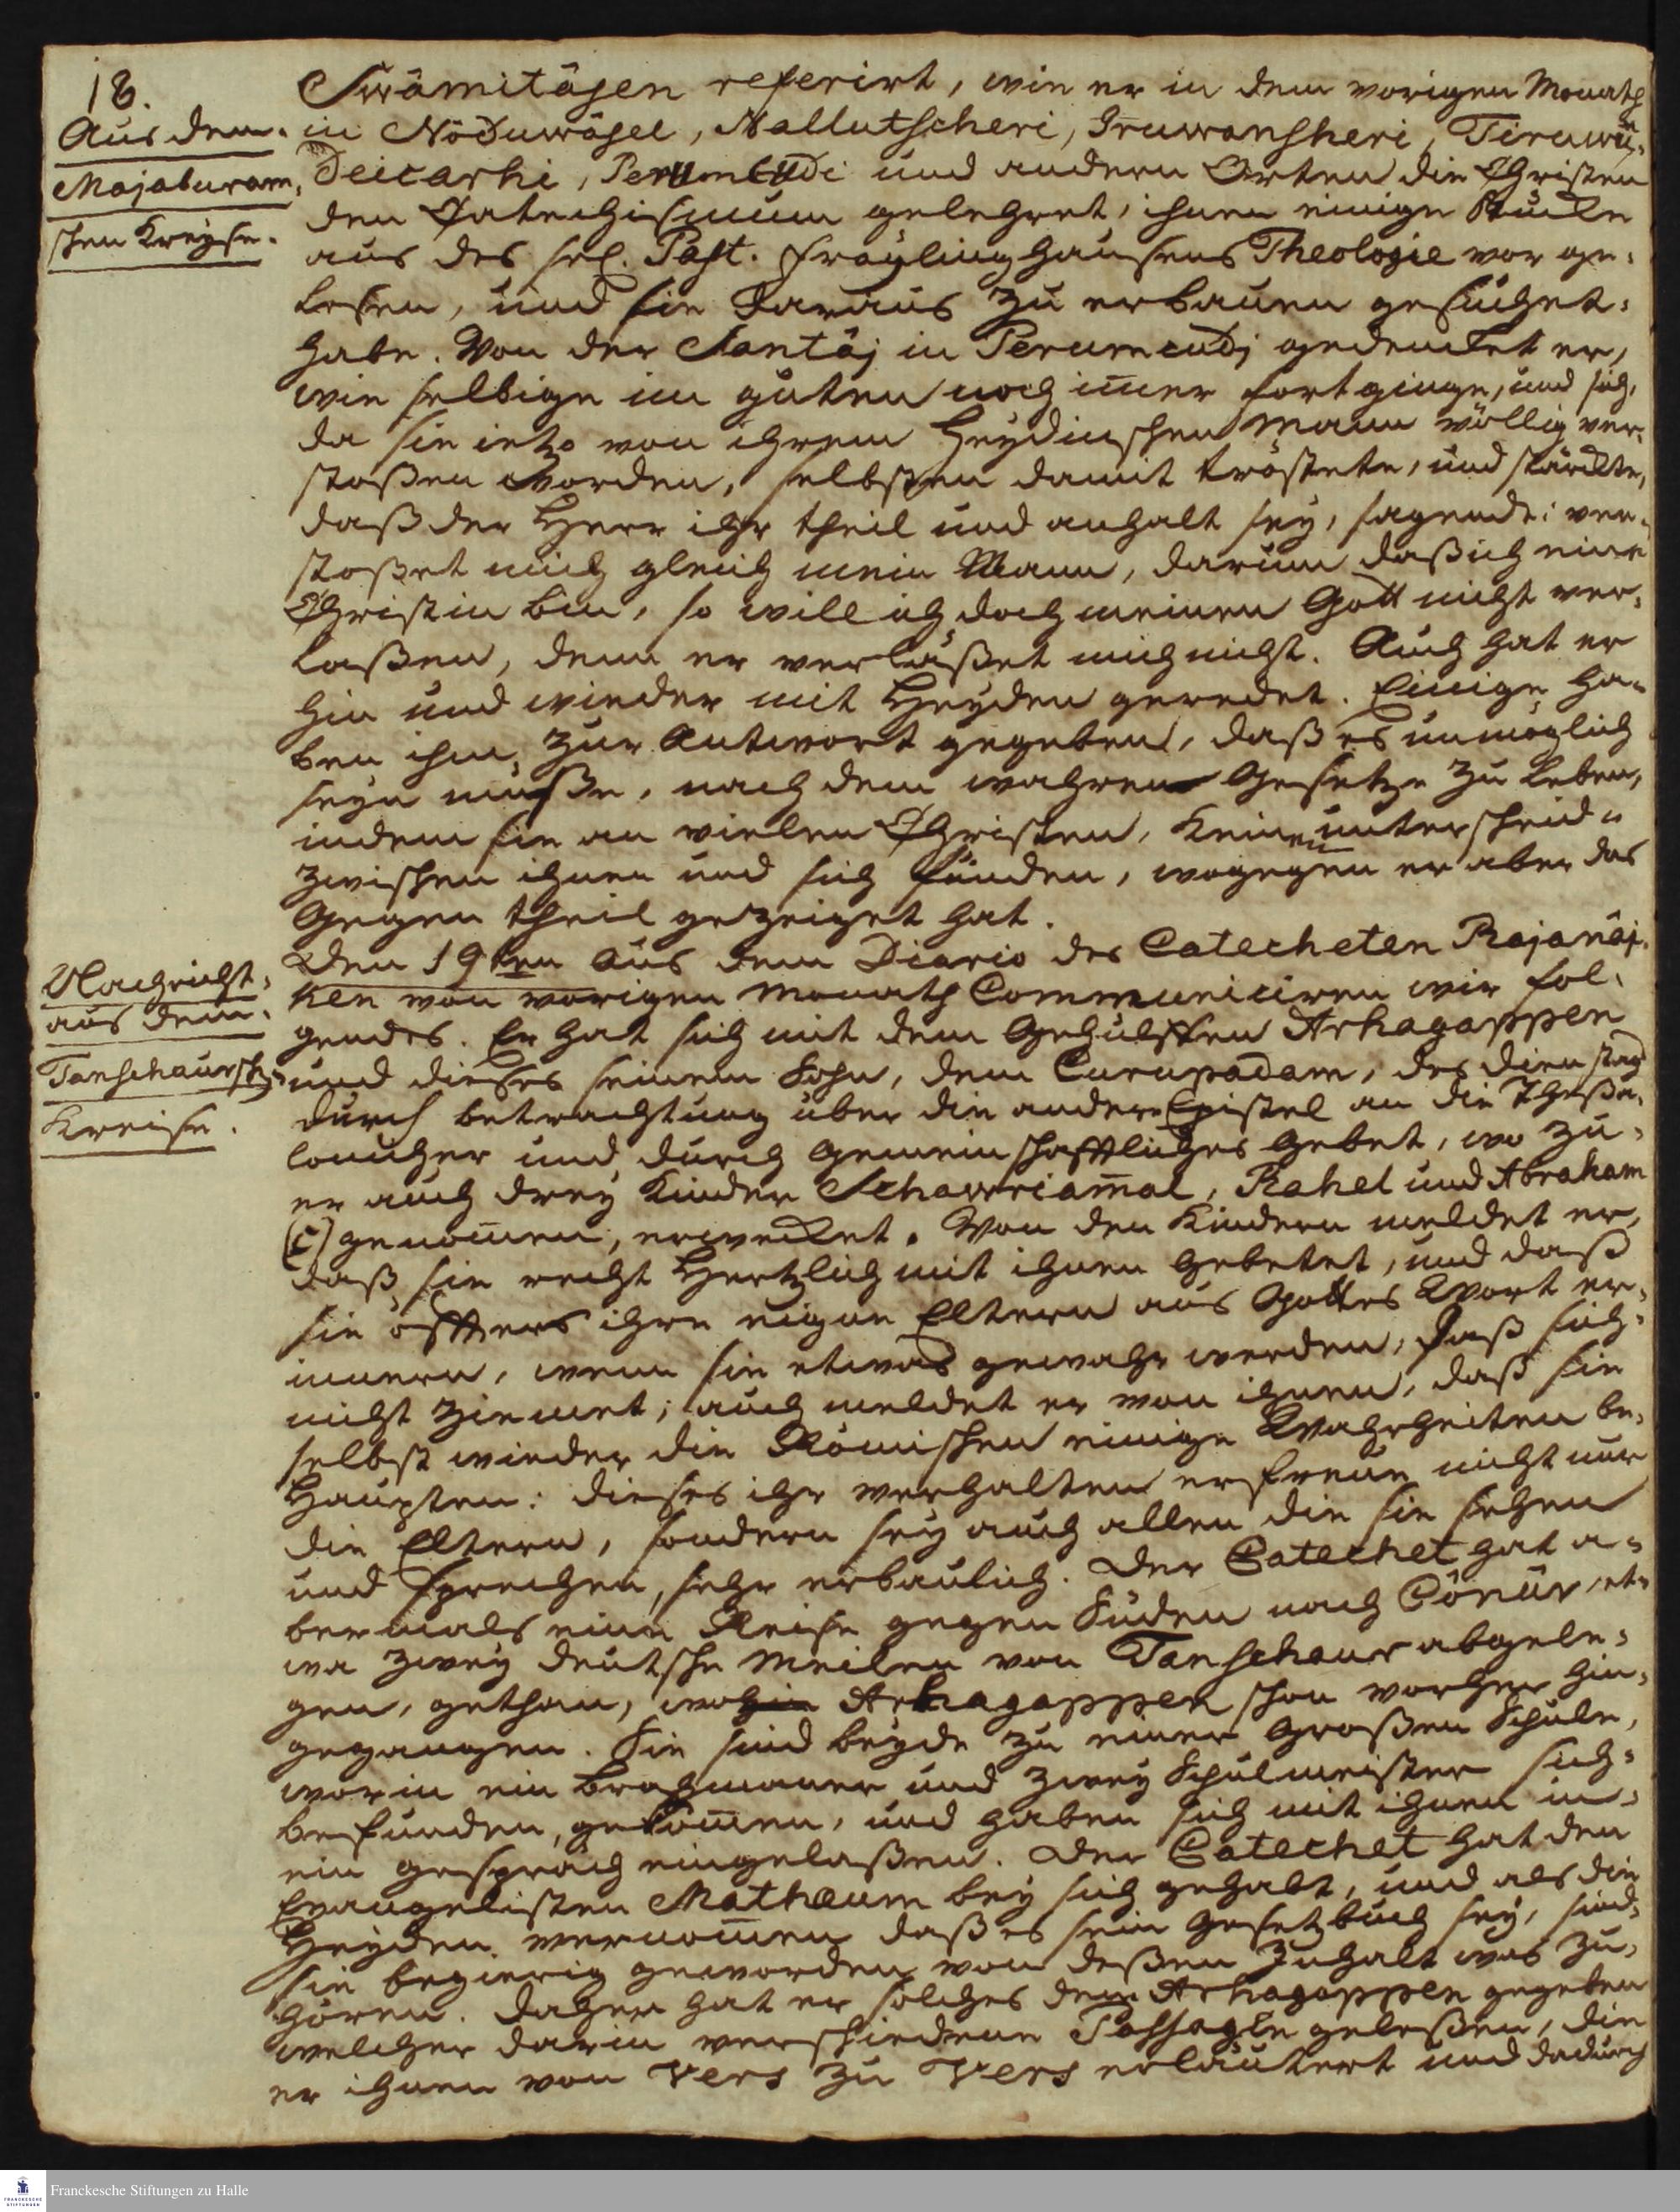 18.
Aus dem
Majaburam,
schen Kreyse.
Swâmitâsen referirt, wie er in dem vorigen Monath
in Nôduwâsel, Nallutscheri, Iruwansheri, Tiruwên,
deicarhi, Perumcudi und andern Orten die Christen
den Catechismum gelehret, ihnen einige Stücke
aus des sel. Past. Freylinghausens Theologie vor ge,
lesen, und sie daraus zu erbauen gesuchet,
habe. Von der Santâj in Perumcudj gedencket er,
wie selbige im guten noch im̄er fort ginge, und sich,
da sie ietzo von ihrem Heydinschen Mann völlig ver,
stoßen worden, selbsten damit tröstete, und stärckte,
daß der Herr ihr theil und anhalt sey, sagende: ver,
stoßet mich gleich mein Mann, darum daß ich eine
Christin bin, so will ich doch meinen Gott nicht ver,
laßen, denn er verläßet mich nicht. Auch hat er
hin und wieder mit Heyden geredet. Einige ha,
ben ihm zur Antwort gegeben, daß es unmöglich
seyn müße, nach dem wahren Gesetze zu leben,
indem sie an vielen Christen, keinen unterscheid
zwischen ihnen und sich fünden, wogegen er aber das
Gegen theil gezeiget hat.
Nachricht,
aus dem
Tanschaursch,
Kreise.
Den 19ten Aus dem Diario des Catecheten Rajanâj,
ken von vorigen Monath Communiciren wir fol,
gendes. Er hat sich mit dem Gehülffen Arhagappen
und dieses seinem Sohn, dem Curupadam, des dienstag
durch betrachtung über die andere Epistel an die Theße,
lonicher und durch gemeinschafftliches Gebet, wo zu,
er auch drey Kinder Schawriam̄al, Rahel und Abraham
(c) genom̄en, erwecket. Von den Kindern meldet er,
daß sie recht Hertzlich mit ihnen gebetet, und daß
sie öffters ihre eigne Eltern aus Gottes Wort er,
innern, wenn sie etwas gewahr werden, daß sich,
nicht ziemet; auch meldet er von ihnen, daß sie
selbst wieder die Römischen einige Wahrheiten be,
haupten: dieses ihr verhalten erfreue nicht nur
die Eltern, sondern sey auch allen die sie sehen
und sprechen, sehr erbaulich. Der Catechet hat a,
bermals eine Reise gegen Süden nach Cônûr, et,
wa zwey deutsche Meilen von Tanschaur abgele,
gen, gethan, wohin Arhagappen schon vorher hin,
gegangen. Sie sind beyde zu einer Großen Schule,
worin ein Brahmaner und zwey Schulmeister sich,
befunden, gekom̄en, und haben sich mit ihnen in,
ein gespräch eingelaßen. Der Catechet hat den
Evangelisten Mathæum bey sich gehabt, und als die
Heyden vernom̄en daß es sein gesetzbuch sey, sind,
sie begierig geworden von deßen Inhalt was zu,
hören. Daher hat er solches dem Arhagappen gegeben
welcher darin verschiedene Passagen geleßen, die
er ihnen von Vers zu Vers erläutert und dadurch
Franckesche Stiftungen zu Halle